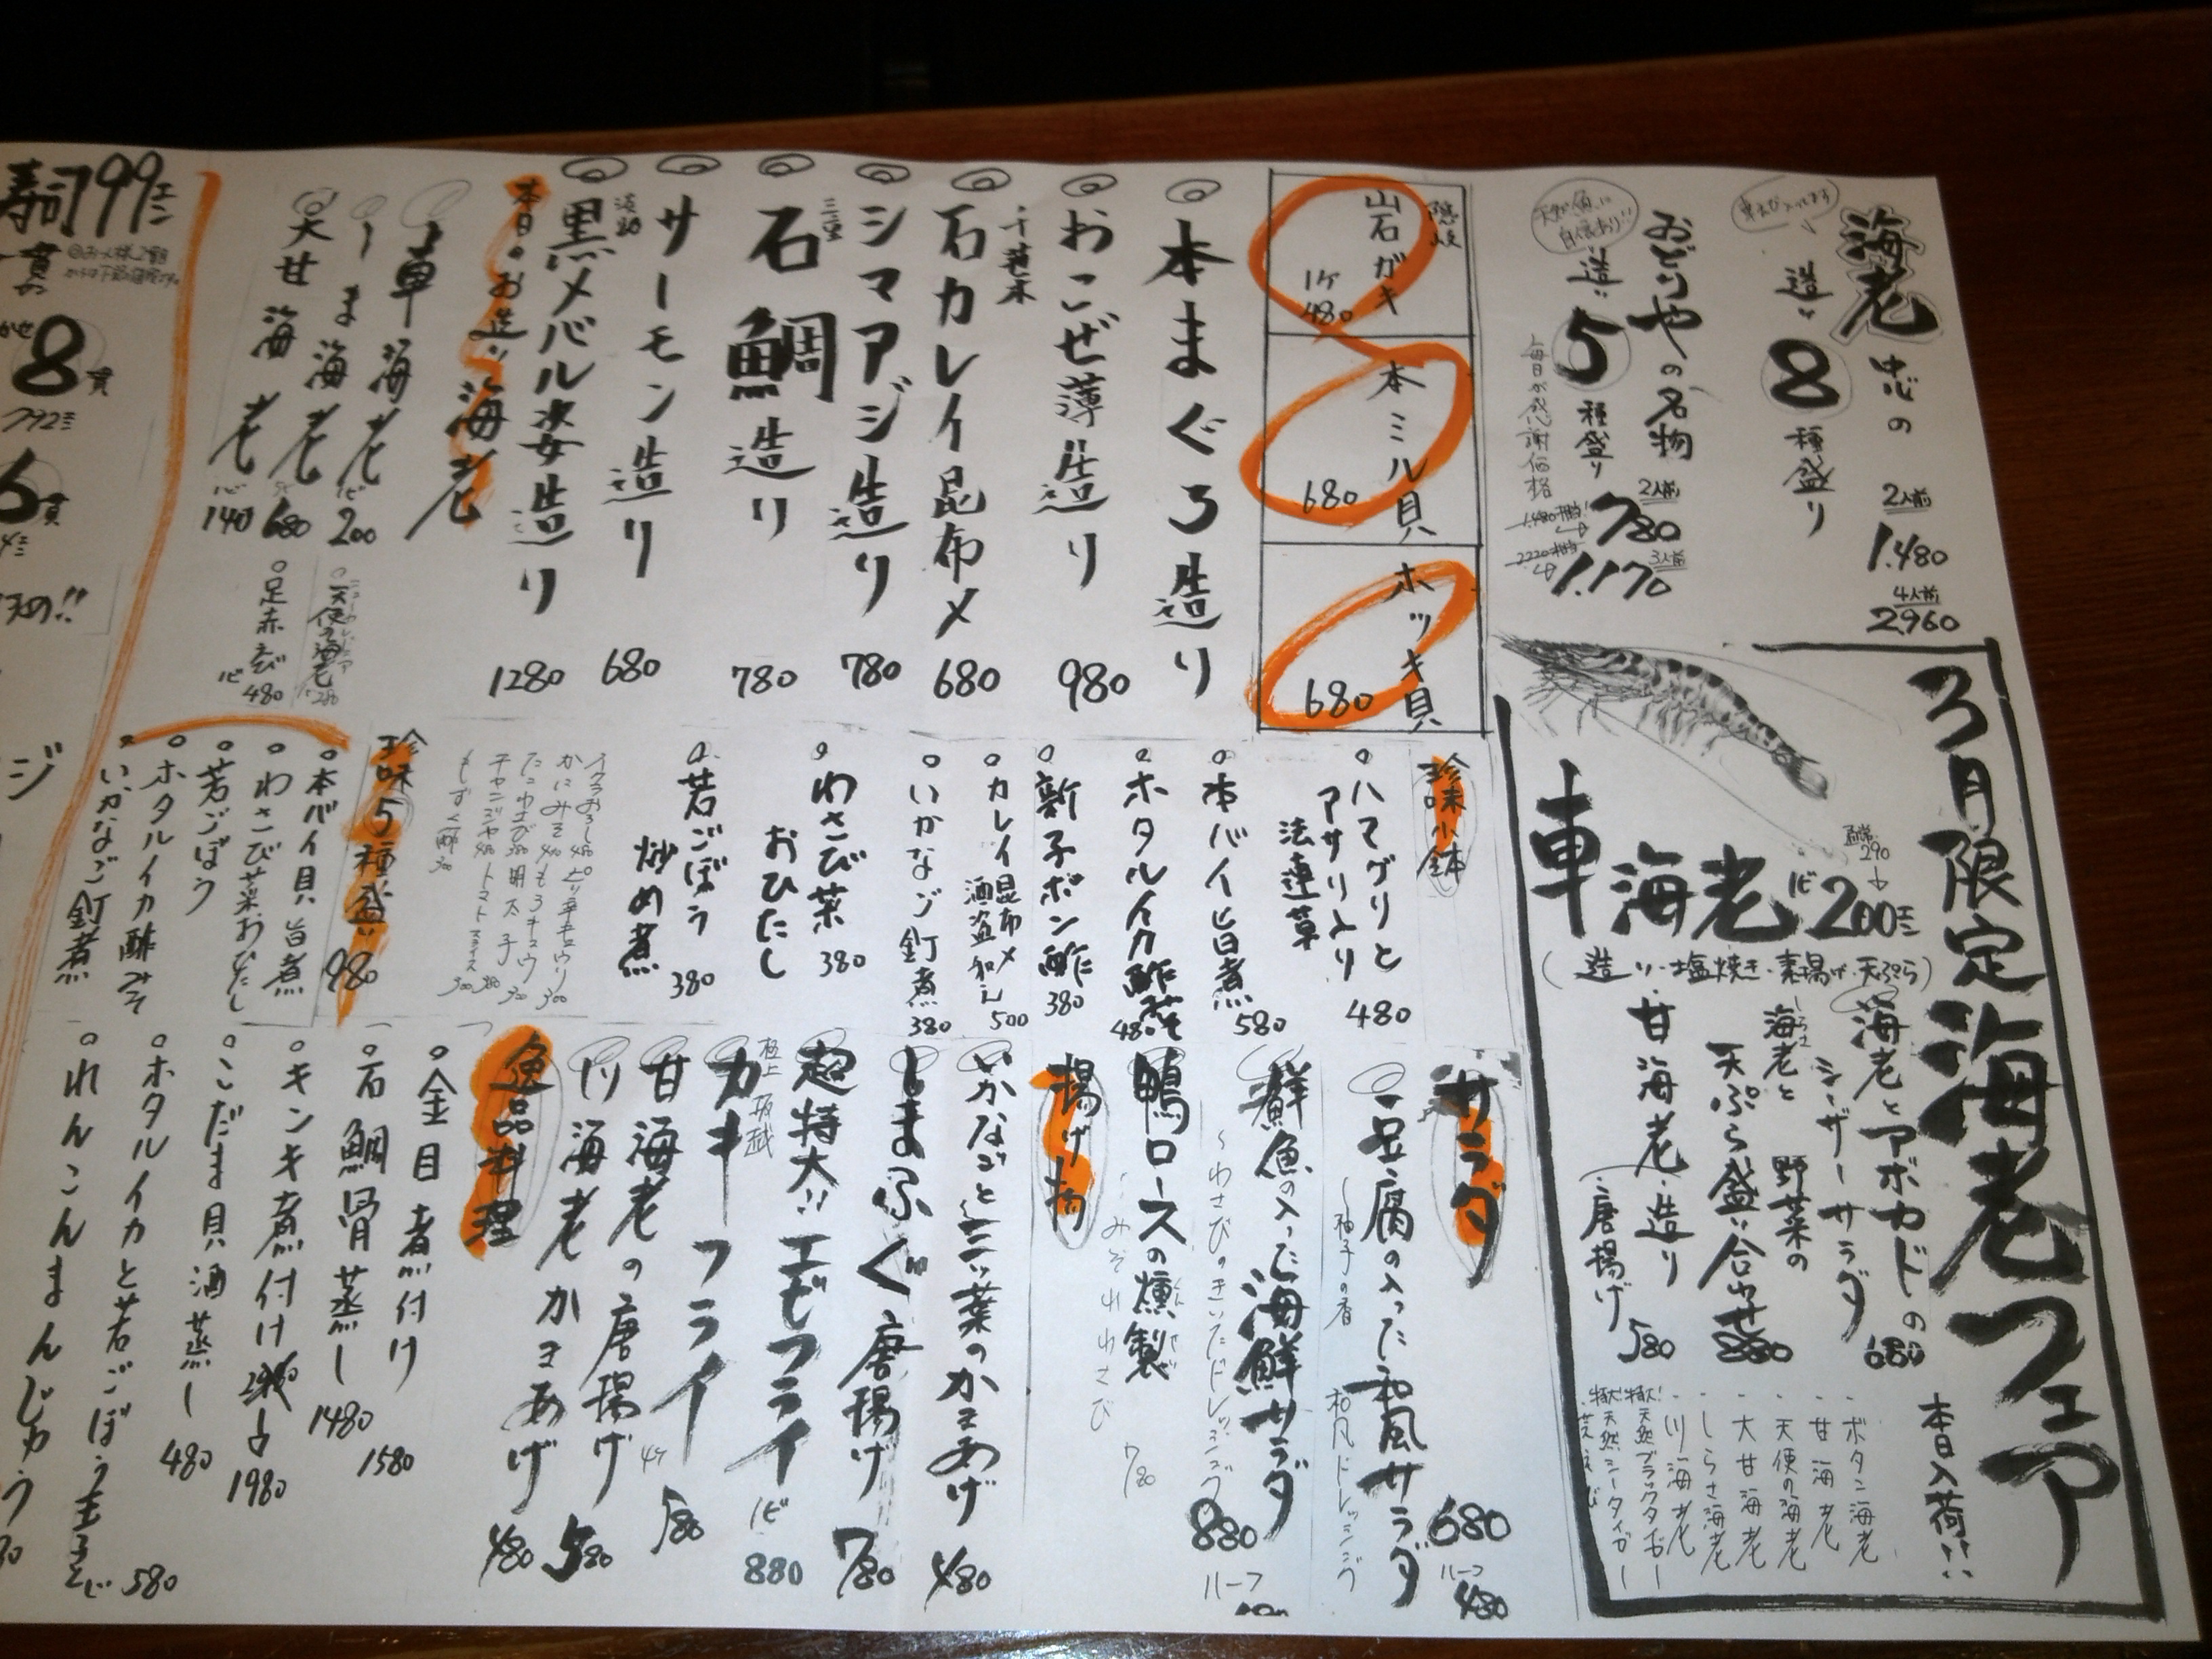 3月限定海老フェア
通常290
車海老 1ピ 200
(造り・塩焼き・素揚げ・天ぷら)
海老とアボカドの
シーザーサラダ 680
海老と野菜の
天ぷら盛り合わせ 880
甘海老・造り
・唐揚げ 580
本日入荷!!
・ボタン海老
・甘海老
・天使の海老
・大甘海老
・しらさ海老
・川海老
特大!天然ブラックタイガー
特大!天然シータイガー
海老中心の
造り8種盛り
2人前 1.480
4人前 2960
おどりやの名物
造り5種盛り
2人前 780
3人前 1.170
毎日が感謝価格
天然魚に自信あり!!
隠岐
岩ガキ 1ケ 480
本ミル貝 680
ホッキ貝 680
本まぐろ造り
おこぜ薄造り 980
千葉
石カレイ昆布〆 680
シマアジ造り 780
三重
石鯛造り 780
サーモン造り 680
淡路
黒メバル姿造り 1280
本日のお造り海老
車海老 1ピ 200
しま海老 680
大甘海老 1ピ 140
天使の海老
足赤えび 1ピ 480
珍味小鉢
ハマグリと
アサリ入り
法蓮草 480
本バイ旨煮 580
ホタルイカ酢みそ 480
新子ポン酢 380
カレイ昆布〆
酒盗和え 500
いかなご釘煮 380
わさび菜
おひたし 380
若ごぼう
炒め煮 380
イクラおろし 480 ピリ辛キュウリ 300
かにみそ もろキュウ 300
たこわさび 380 明太子
チャンジャ 480 トマトスライス 300
もずく酢 300
珍味5種盛り 980
本バイ貝旨煮
わさび菜おひたし
若ごぼう
ホタルイカ酢みそ
いかなご釘煮
サラダ
豆腐の入った和風サラダ 680
ハーフ 480
〜柚子の香 和風ドレッシング
鮮魚の入った海鮮サラダ 880
ハーフ
〜わさびのきいたドレッシング
鴨ロースの燻製
みぞれわさび 780
揚げ物
いかなごと三ッ葉のかきあげ 480
しまふぐ唐揚げ 780
超特大!!エビフライ 1ピ 880
極上 坂越
カキフライ
甘海老の唐揚げ 580
川海老かきあげ 480
逸品料理
金目煮付け 1580
石鯛骨蒸し 1480
キンキ煮付け 1980
こだま貝酒蒸し 480
ホタルイカと若ごぼう玉子とじ 580
れんこんまんじゅう
寿司99エン
8貫
792
6貫